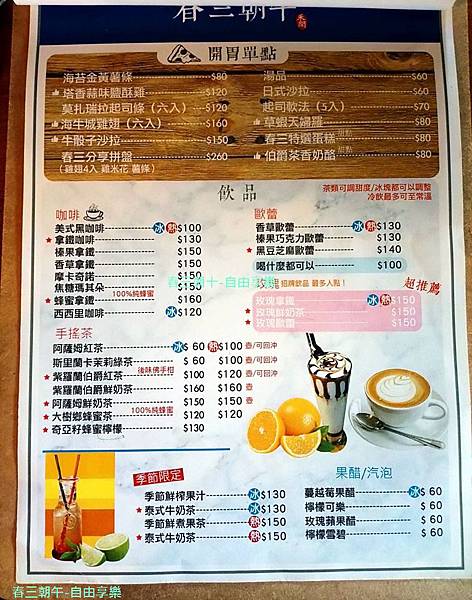 春三朝午
開胃單點
海苔金黃薯條 $80
塔香蒜味鹽酥雞 $120
莫扎瑞拉起司條（六入） $120
海牛城雞翅（六入） $160
牛骰子沙拉 $150
春三分享拼盤 $260
（雞翅4入 雞米花 薯條）
湯品 $60
日式沙拉 $60
起司軟法（5入） $70
草蝦天婦羅 $80
春三特選蛋糕 甜點 $80
伯爵茶香奶酪 甜點 $80
飲品
茶類可調甜度/冰塊都可以調整
冷飲最多可至常溫
咖啡
美式黑咖啡 冰 熱 $100
拿鐵咖啡 $130
榛果拿鐵 $150
香草拿鐵 $150
摩卡奇諾 $150
焦糖瑪其朵 $150
蜂蜜拿鐵 100%純蜂蜜 $160
西西里咖啡 冰 $120
歐蕾
香草歐蕾 冰 熱 $130
榛果巧克力歐蕾 $130
黑豆芝麻歐蕾 $140
喝什麼都可以 $100
玫瑰 招牌飲品 最多人點！ 超推薦
玫瑰拿鐵 冰 熱 $150
玫瑰鮮奶茶 $150
玫瑰歐蕾 $150
手搖茶
阿薩姆紅茶 冰 $ 60 熱 $100 壺/可回沖
斯里蘭卡茉莉綠茶 $ 60 $100 壺/可回沖
紫羅蘭伯爵紅茶 後味佛手柑 $100 $120 壺/可回沖
紫羅蘭伯爵鮮奶茶 $160 $160 壺
阿薩姆鮮奶茶 $150 $150 壺
大樹鄉蜂蜜茶 100%純蜂蜜 $120 $120
奇亞籽蜂蜜檸檬 $130
季節限定
季節鮮榨果汁 冰 $130
泰式牛奶茶 冰 $130
季節鮮煮果茶 熱 $150
泰式牛奶茶 熱 $150
果醋/汽泡
蔓越莓果醋 冰 $ 60
檸檬可樂 $ 60
玫瑰蘋果醋 $ 60
檸檬雪碧 $ 60
春三朝午-自由享樂
春三朝午-自由享樂